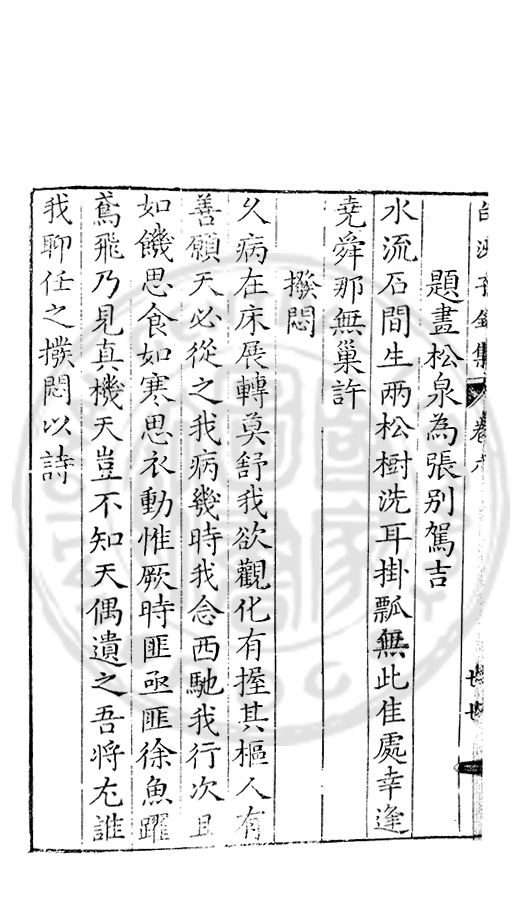 白沙子全集
卷六
題畫松泉為張別駕吉
水流石間生兩松樹洗耳掛瓢無此佳處幸逢
堯舜那無巢許
撥悶
久病在床展轉莫舒我欲觀化有握其樞人有
善願天必從之我病幾時我念西馳我行次且
如饑思食如寒思衣動惟厥時匪亟匪徐魚躍
鳶飛乃見真機天豈不知天偶遺之吾將尤誰
我聊任之撥悶以詩